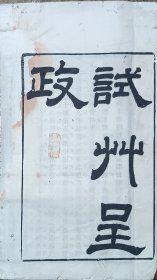 試艸呈
政